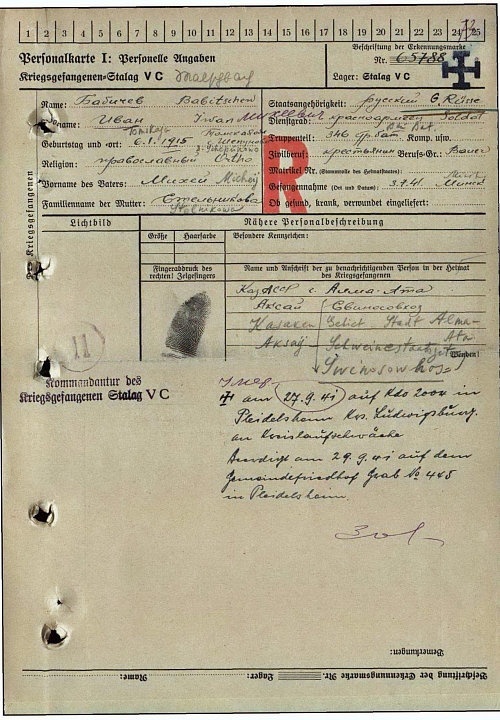 1 2 3 4 5 6 7 8 9 10 11 12 13 14 15 16 17 18 19 20 21 22 23 24 25
Personalkarte I: Personelle Angaben
Beschriftung der Erkennungsmarke
Nr. 65788
Kriegsgefangenen-Stalag V C
Lager: Stalag V C
Name: Бабичев Babitschew
Staatsangehörigkeit: русский
Vorname: Иван Iwan Михеевич
Dienstgrad: красноармеец Soldat
Truppenteil: 346 Komp. usw.
Geburtstag und -ort: 6.1.1915
Zivilberuf: крестьянин Berufs-Gr.: Bauer
Religion: православный Ortho
Matrikel Nr. (Stammrolle des Heimatstaates)
Vorname des Vaters: Михей Michej
Gefangennahme (Ort und Datum): 3.7.41. Минск
Familienname der Mutter: Стельникова
Stelnikowa
Ob gesund, krank, verwundet eingeliefert:
R
Der Kriegsgefangenen
Lichtbild
Nähere Personalbeschreibung
Größe Haarfarbe Besondere Kennzeichen:
Fingerabdruck des rechten! Zeigefingers
Name und Anschrift der zu benachrichtigenden Person in der Heimat des Kriegsgefangenen
КазАССР г. Алма-Ата
Аксай Свиносовхоз
Kasaken Gebiet Stadt Alma-Ata
Aksaj
Wenden!
Swinosowhos
11
Kommandantur des
Kriegsgefangenen Stalag V C
умер
am 27.9.41 auf Kdo 2004 in
Pleidelsheim Krs. Ludwigsburg
an Kreislaufschwäche
Beerdigt am 29.9.41 auf dem
Gemeindefriedhof Grab No 445
in Pleidelsheim.
Bemerkungen:
Beschriftung der Erkennungsmarke Nr. Lager: Name: